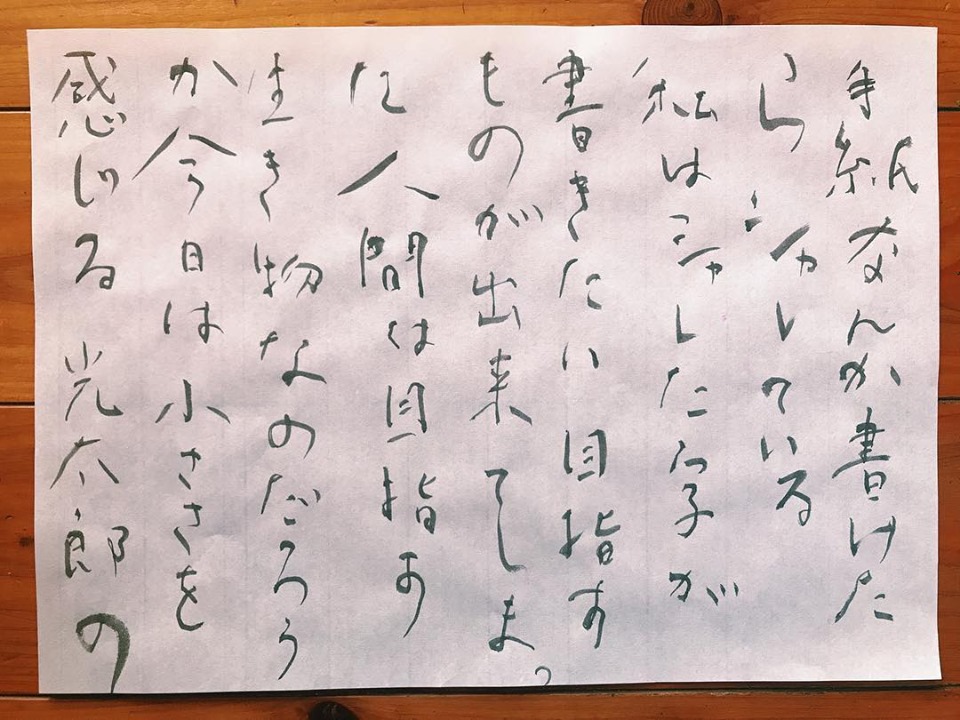 手紙なんか書けた
ら シャレている
私はシャレした字が
書きたい 目指す
ものが出来てしまっ
た人間は目指す
生き物なのだろう
か今日は小ささを
感じる 光太郎の